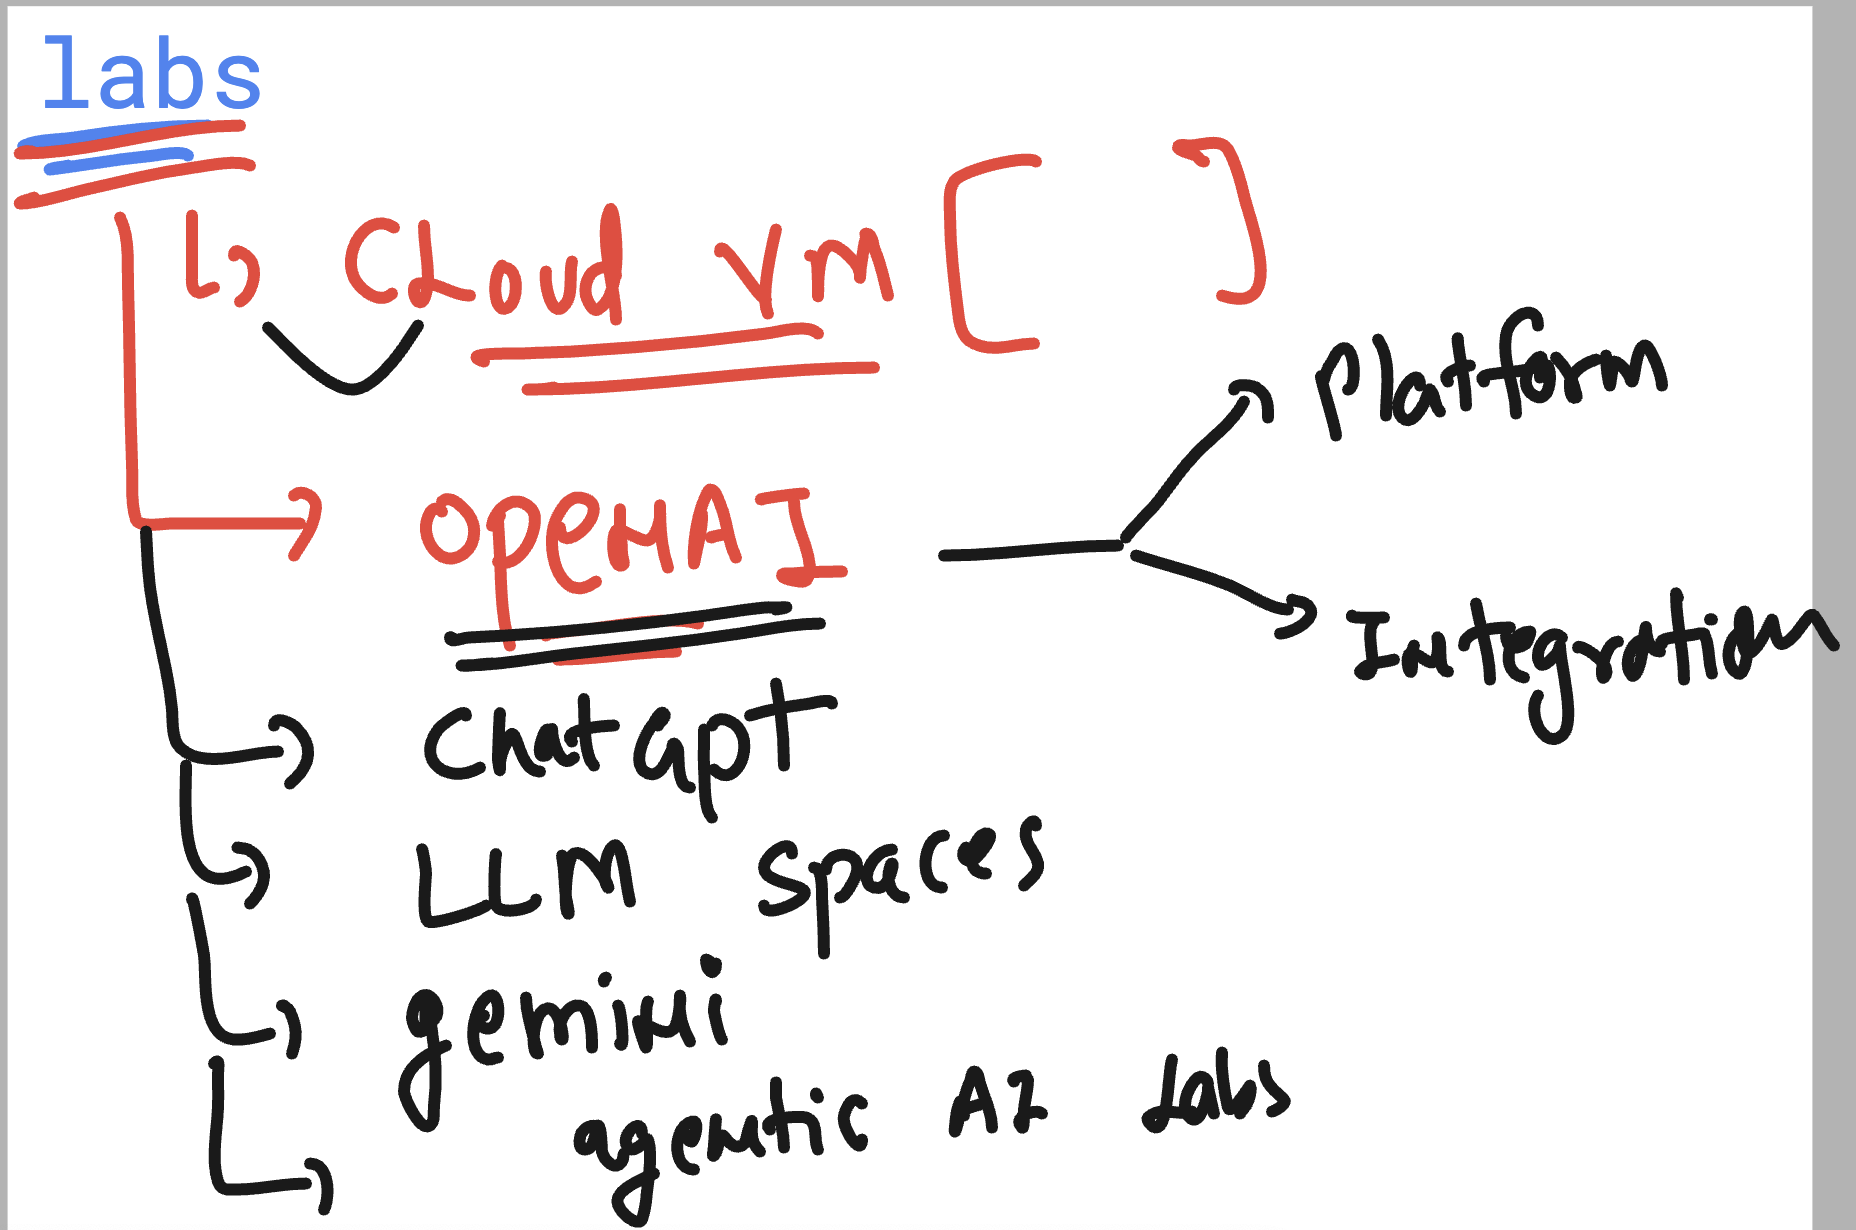 labs
Cloud VM [ ]
OpenAI
Platform
Integration
ChatGPT
LLM Spaces
gemini
agentic AI Labs